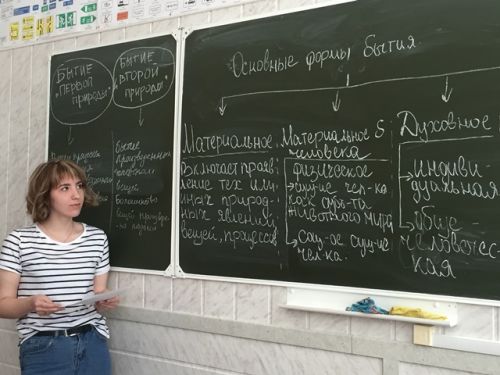 Бытие
"первой
природы"
Бытие
"второй
природы"
бытие
произведенных
человеком
вещей
большинство
вещей
Основные формы бытия
Материальное
Включает прояв
ление тех или
иных природ-
ных явлений,
вещей, процессов
Материальное S
человека
физическое
сущ-ие чел-ка
как
животного мира
Соц-ое сущ-ие
чел-ка.
Духовное
индиви-
дуальная
обще
человечес-
кая